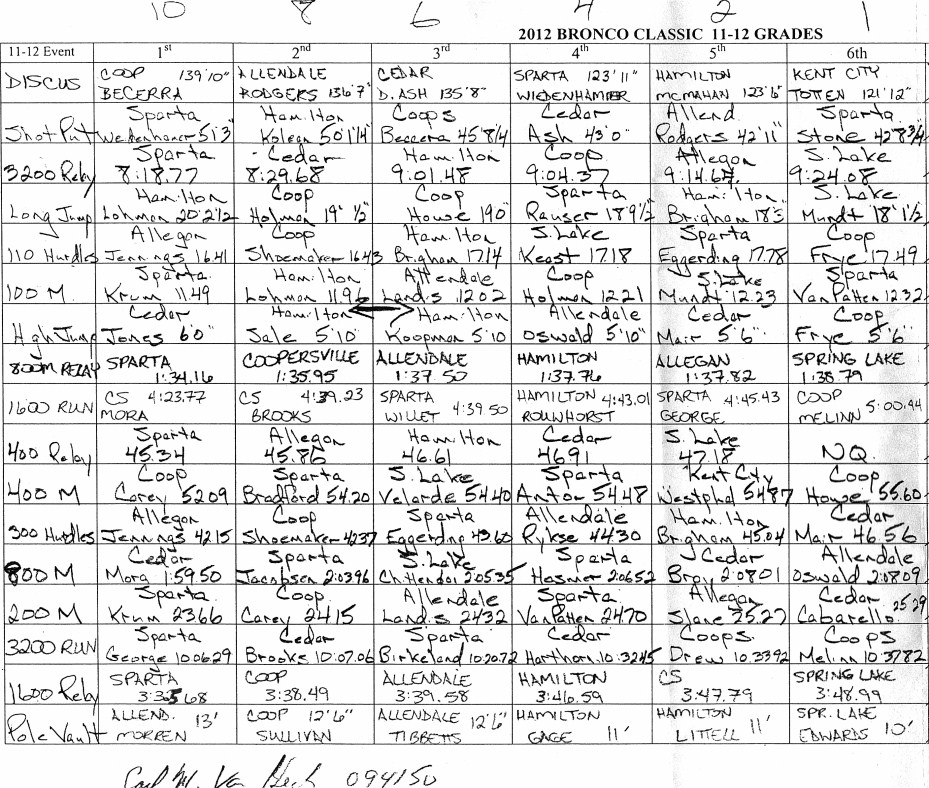 10 8 6 4 2 1
2012 BRONCO CLASSIC 11-12 GRADES
11-12 Event 1st 2nd 3rd 4th 5th 6th
DISCUS COOP 139'10" ALLENDALE CEDAR SPARTA 123'11" HAMILTON KENT CITY
BECERRA RODGERS 136'7" D. ASH 135'8" WIEDENHAMER MCMAHAN 123'6" TOTTEN 121'12"
Sparta Hamilton Coops Cedar Allend Sparta
Shot Put Wedenhamer 51'3" Kolean 50'1 1/4" Becerra 45'8 1/4 Ash 43'0" Rodgers 42'11" Stone 42'8 3/4
Sparta Cedar Hamilton Coop Allegan S. Lake
3200 Relay 8:18.77 8:29.68 9:01.48 9:04.37 9:14.67 9:24.08
Hamilton Coop Coop Sparta Hamilton S. Lake
Long Jump Lohman 20'2 1/2 Holman 19' 1/2" House 190" Rauser 18'9 1/2 Brigham 18'3 Mundt 18'1 1/2
Allegan Coop Hamilton S. Lake Sparta Coop
110 Hurdles Jennings 16.41 Shoemaker 16.43 Brigham 17.14 Keast 17.18 Eggerding 17.78 Frye 17.49
Sparta Hamilton Allendale Coop S. Lake Sparta
100 M. Krum 11.49 Lohman 11.96 Landis 12.02 Holman 12.21 Mundt 12.23 Van Patten 12.32
Cedar Hamilton Hamilton Allendale Cedar Coop
High Jump Jones 6'0" Sale 5'10" Koopman 5'10 Oswald 5'10" Mair 5'6" Frye 5'6"
800M RELAY SPARTA COOPERSVILLE ALLENDALE HAMILTON ALLEGAN SPRING LAKE
1:34.16 1:35.95 1:37.50 1:37.76 1:37.82 1:38.79
1600 RUN CS 4:23.77 CS 4:39.23 SPARTA HAMILTON 4:43.01 SPARTA 4:45.43 COOP
MORA BROOKS WILLET 4:39.50 ROUWHORST GEORGE MELINN 5:00.44
Sparta Allegan Hamilton Cedar S. Lake
400 Relay 45.34 45.86 46.61 46.91 47.18 NQ.
Coop Sparta S. Lake Sparta Kent City Coop
400 M Carey 52.09 Bradford 54.20 Velarde 54.40 Antor 54.48 Westphal 54.87 House 55.60
Allegan Coop Sparta Allendale Hamilton Cedar
300 Hurdles Jennings 42.15 Shoemaker 42.37 Eggerding 43.60 Rykse 44.30 Brigham 45.04 Mair 46.56
Cedar Sparta S. Lake Sparta Cedar Allendale
800 M Mora 1:59.50 Jacobsen 2:03.96 Chittenden 2:05.35 Hosmer 2:06.52 Bray 2:08.01 Oswald 2:08.09
Sparta Coop Allendale Sparta Allegan Cedar 25.29
200 M Krum 23.66 Carey 24.15 Landis 24.32 Van Patten 24.70 Slane 25.27 Cabarello
Sparta Cedar Sparta Cedar Coops. Coops
3200 RUN George 10:06.29 Brooks 10:07.06 Birkeland 10:20.72 Harthorn 10:32.45 Drew 10:33.92 Melinn 10:37.82
SPARTA COOP ALLENDALE HAMILTON CS SPRING LAKE
1600 Relay 3:35.68 3:38.49 3:39.58 3:46.59 3:47.79 3:48.99
ALLEND. 13' COOP 12'6" ALLENDALE 12'6" HAMILTON HAMILTON SPR. LAKE
Pole Vault MORREN SULLIVAN TIBBETTS GAGE 11' LITTELL 11' EDWARDS 10'
Van 094150